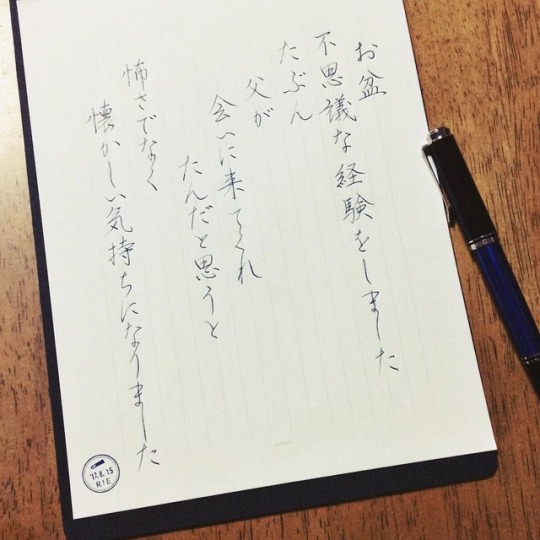 お盆
不思議な経験をしました
たぶん
父が
会いに来てくれ
たんだと思うと
怖さでなく
懐かしい気持ちになりました
'17.8.15
RIE